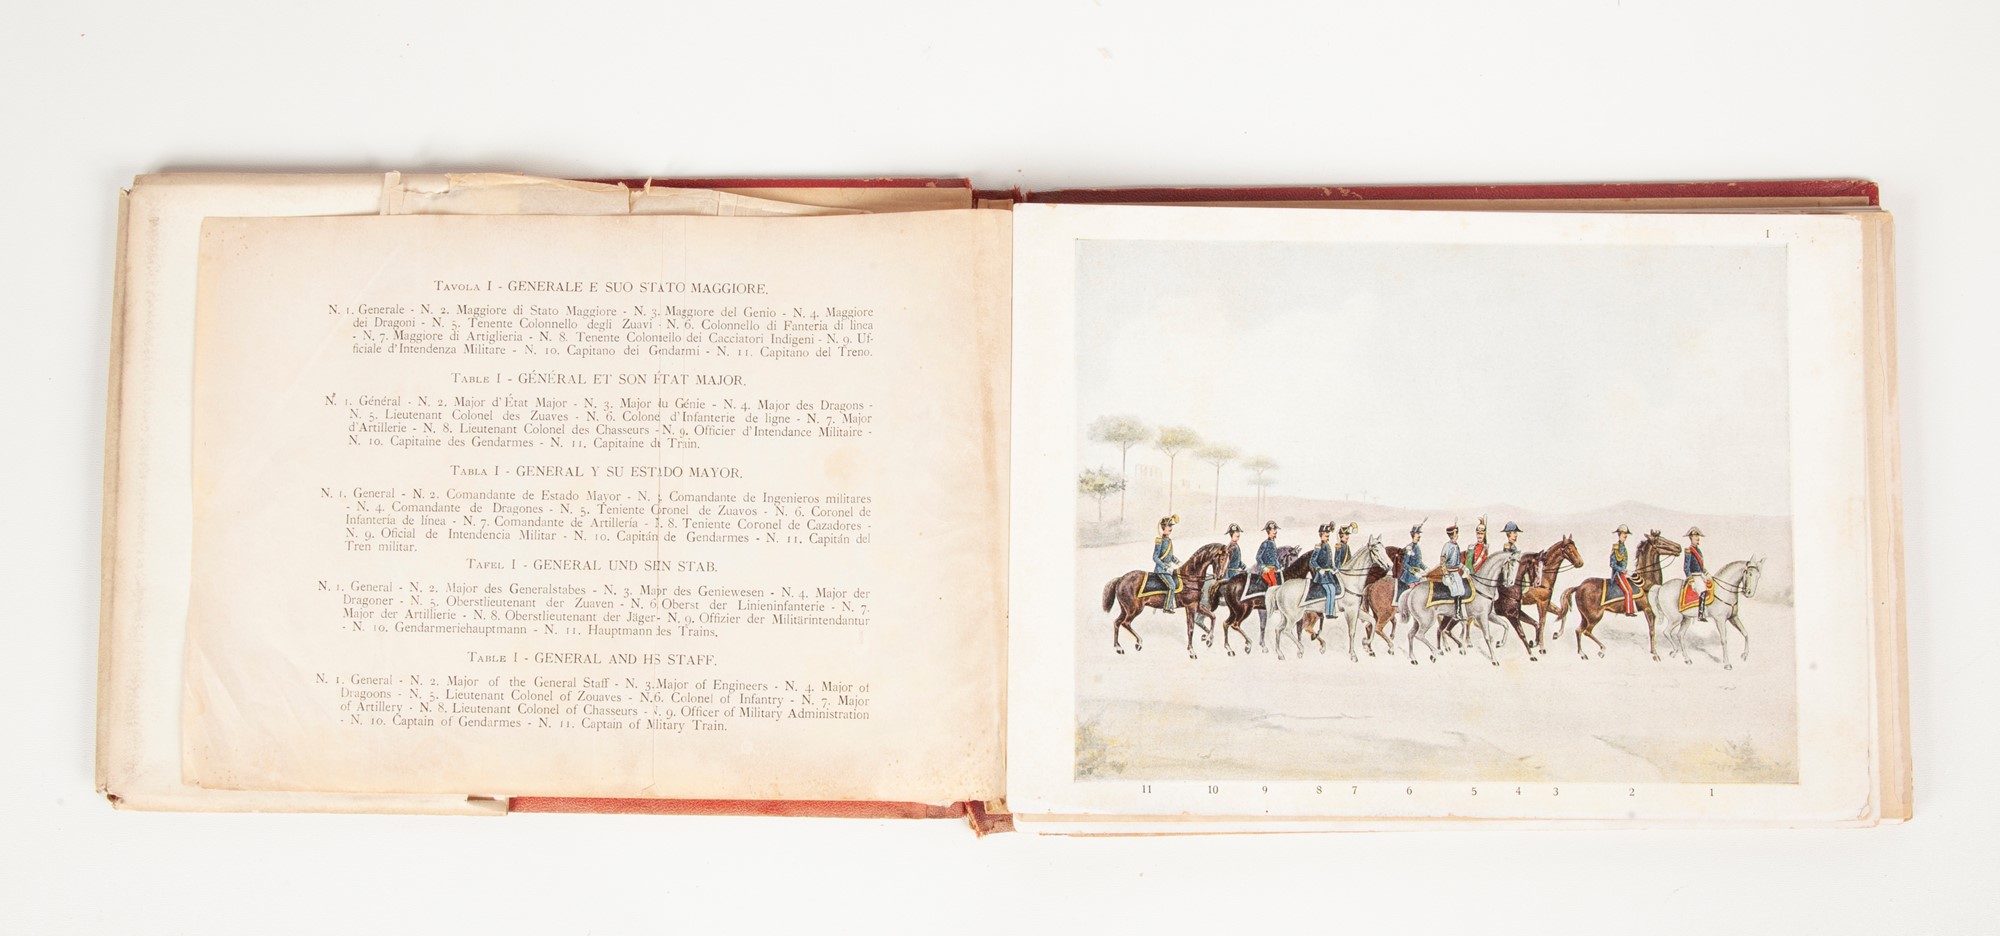 TAVOLA I - GENERALE E SUO STATO MAGGIORE.
N. 1. Generale - N. 2. Maggiore di Stato Maggiore - N. 3. Maggiore del Genio - N. 4. Maggiore
dei Dragoni - N. 5. Tenente Colonnello degli Zuavi - N. 6. Colonnello di Fanteria di linea
- N. 7. Maggiore di Artiglieria - N. 8. Tenente Colonnello dei Cacciatori Indigeni - N. 9. Uf-
ficiale d'Intendenza Militare - N. 10. Capitano dei Gendarmi - N. 11. Capitano del Treno.
TABLE I - GÉNÉRAL ET SON ÉTAT MAJOR.
N. 1. Général - N. 2. Major d'État Major - N. 3. Major du Génie - N. 4. Major des Dragons -
N. 5. Lieutenant Colonel des Zuaves - N. 6. Colonel d'Infanterie de ligne - N. 7. Major
d'Artillerie - N. 8. Lieutenant Colonel des Chasseurs - N. 9. Officier d'Intendance Militaire -
N. 10. Capitaine des Gendarmes - N. 11. Capitaine du Train.
TABLA I - GENERAL Y SU ESTADO MAYOR.
N. 1. General - N. 2. Comandante de Estado Mayor - N. 3. Comandante de Ingenieros militares
- N. 4. Comandante de Dragones - N. 5. Teniente Coronel de Zuavos - N. 6. Coronel de
Infantería de línea - N. 7. Comandante de Artillería - N. 8. Teniente Coronel de Cazadores -
N. 9. Oficial de Intendencia Militar - N. 10. Capitán de Gendarmes - N. 11. Capitán del
Tren militar.
TAFEL I - GENERAL UND SEIN STAB.
N. 1. General - N. 2. Major des Generalstabes - N. 3. Major des Geniewesen - N. 4. Major der
Dragoner - N. 5. Oberstlieutenant der Zuaven - N. 6 Oberst der Linieninfanterie - N. 7.
Major der Artillerie - N. 8. Oberstlieutenant der Jäger - N. 9. Offizier der Militärintendantur
- N. 10. Gendarmeriehauptmann - N. 11. Hauptmann des Trains.
TABLE I - GENERAL AND HIS STAFF.
N. 1. General - N. 2. Major of the General Staff - N. 3. Major of Engineers - N. 4. Major of
Dragoons - N. 5. Lieutenant Colonel of Zouaves - N. 6. Colonel of Infantry - N. 7. Major
of Artillery - N. 8. Lieutenant Colonel of Chasseurs - N. 9. Officer of Military Administration
- N. 10. Captain of Gendarmes - N. 11. Captain of Military Train.
1
11 10 9 8 7 6 5 4 3 2 1